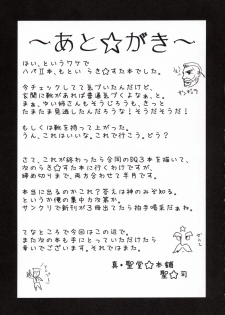 ～あと☆がき～
はい、というワケで
ハバⅡ本、もとい らき☆すた本でした。
今チェックしてて気づいたんだけど、
玄関に靴があれば普通気づくよなぁ、と。
まぁ、ゆい姉さんもそうじろうも、きっと
たまたま見逃したんだろうな!そうだそうだ!
もしくは靴を持って上がった。
うん、これはいいな。これで行こう。どう?
さて、これが終わったら合同の
本を描いて、
次のらき☆すた本に行くわけですが、
締め切りまで、両方合わせて半月です。
本当に出るのかこれ?答えは神のみぞ知る。
というか俺の集中力次第か。
サンクリで新刊が3冊出てたら拍手喝采だぁね。
てなところで今回はこの辺で。
また次の本も手にとっていただけたら
幸いでございます。それではまた。
真・聖堂☆本舗
聖☆司